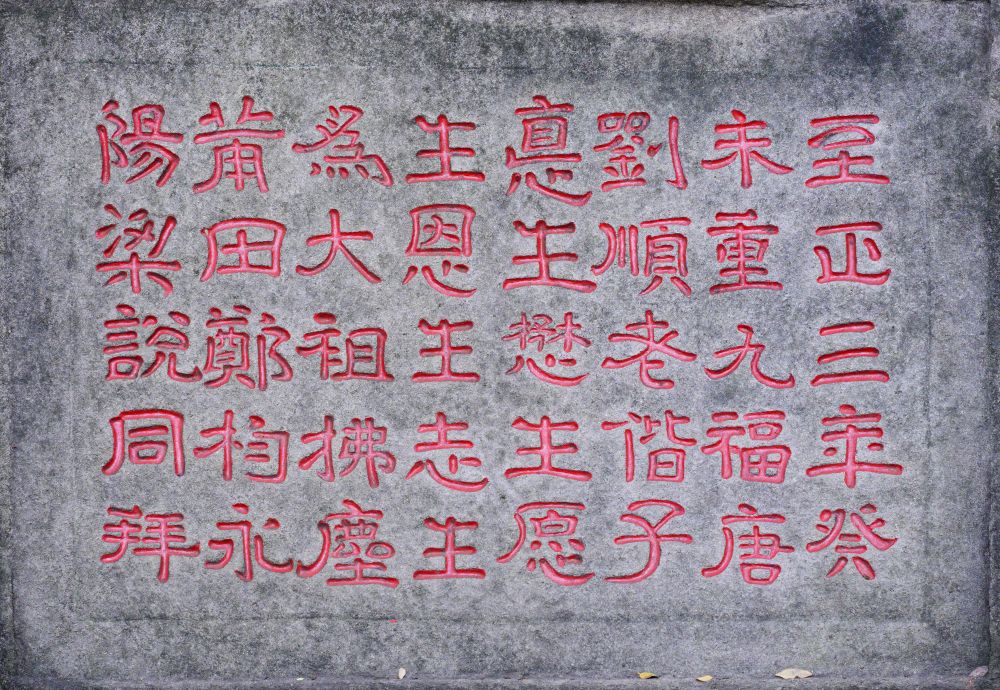 至正三年癸
未重九福唐
劉順老偕子
悳生懋生愿
生恩生志生
爲大祖拂塵
莆田鄭枃永
陽梁說同拜